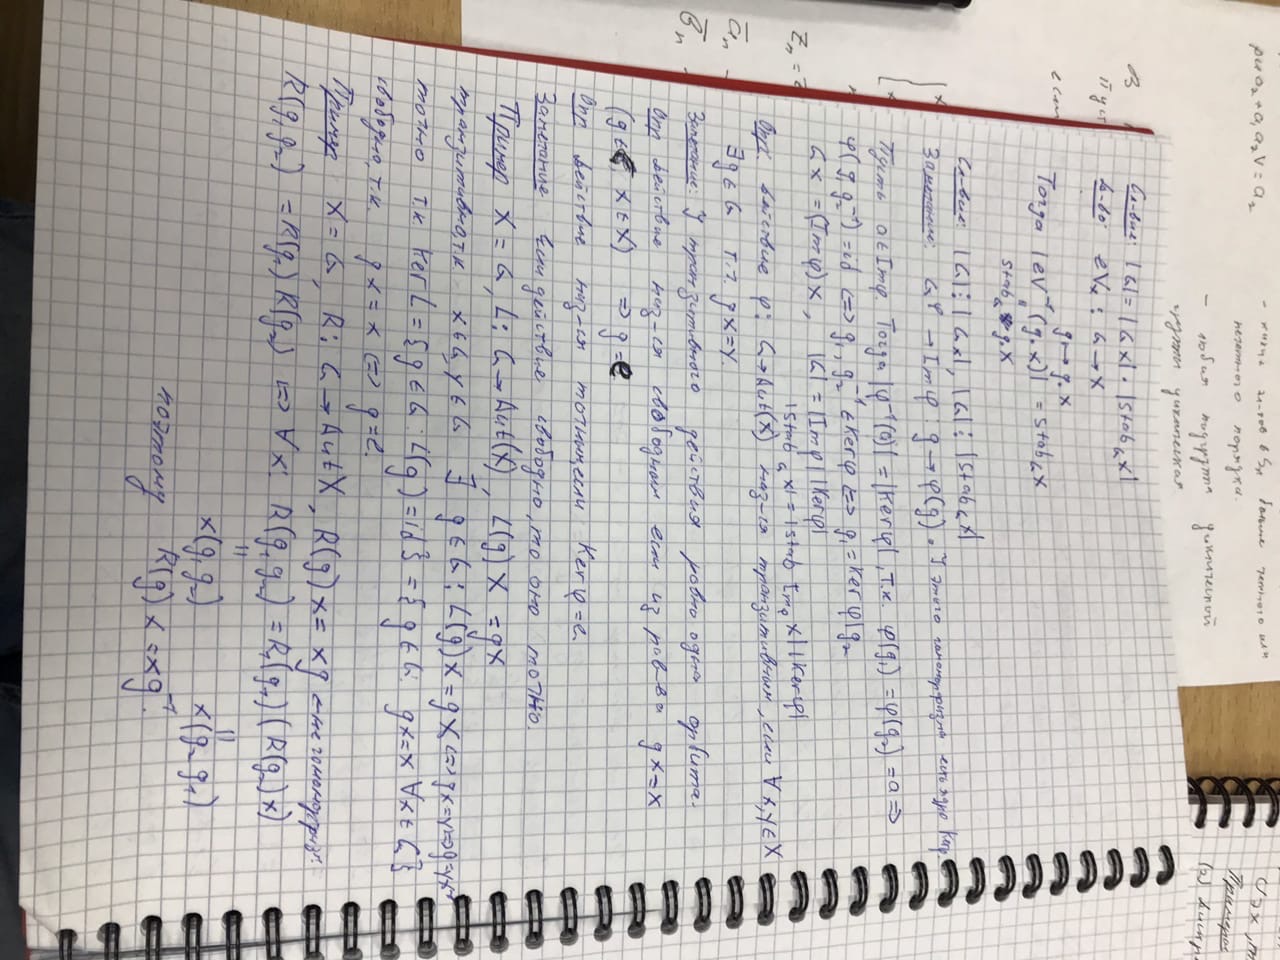 ри a₂ + a₁a₂V = a₂
- любая подгруппа циклической
группы циклическая
нечетного порядка.
В
Пуст
если
Zₙ =
āₙ
B̄ₙ
Примеры
Сл-вие: |G| = |Gx| · |Stab_G x|
Д-во: eVₓ : G → X
g ↦ g·x
Тогда |eV⁻¹(g·x)| = Stab_G x
Stab_G g·x
Сл-вие: |G| ⋮ |Gx|, |G| ⋮ |Stab_G x|
Замечание: G φ → Im φ : g → φ(g). У этого гомоморфизма есть ядро Ker φ.
Пусть a ∈ Im φ. Тогда |φ⁻¹(a)| = |Ker φ|, т.к. φ(g₁) = φ(g₂) = a ⇒
φ(g₁g₂⁻¹) = id ⇔ g₁, g₂⁻¹ ∈ Ker φ ⇔ g₁ = Ker φ | g₂
Gx = (Im φ)x, |G| = |Im φ| |Ker φ|
|Stab_G x| = |Stab Im_φ x| |Ker φ|
Опр. Действие φ: G → Aut(X) наз-ся транзитивным, если ∀ x, y ∈ X
∃ g ∈ G т.ч. gx = y.
Замечание: У транзитивного действия ровно одна орбита.
Опр Действие наз-ся свободным если из рав-ва gx = x
(g ∈ G, x ∈ X) ⇒ g = e
Опр Действие наз-ся точным если Ker φ = e.
Замечание Если действие свободно, то оно точно.
Пример X = G, L: G → Aut(X), L(g)x = gx
транзитивно, т.к. x ∈ G, y ∈ G ∃ g ∈ G : L(g)x = gx ⇔ gx = y ⇔ g = yx⁻¹
точно т.к. Ker L = {g ∈ G : L(g) = id} = {g ∈ G : gx = x ∀x ∈ G}
свободна, т.к. gx = x ⇔ g = e.
Пример X = G, R: G → Aut X, R(g)x = xg ← не гомоморфизм.
R(g₁g₂) = R(g₁)R(g₂) ⇔ ∀x: R(g₁g₂) = R₁(g₁)(R(g₂)x)
= =
x(g₁g₂) x(g₂g₁)
поэтому R(g)x = xg⁻¹.